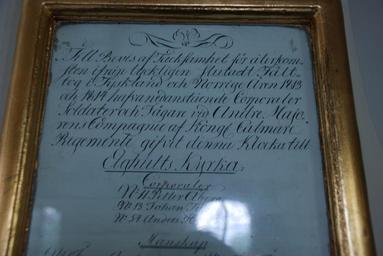 Till Bevis af Tacksamhet för återkom-
sten ifrån lyckligen slutadt Fält
tog i Tyskland och Norrige Åren 1813
och 1814 hafva nedanstående Corporaler
Soldater och Jägare vid Andre Majo-
rens Compagnie af Kongl Calmare
Regemente gifvit denna Klocka till
Elghults Kyrka.
Corporaler
Peter
Johan
Anders
Manskap